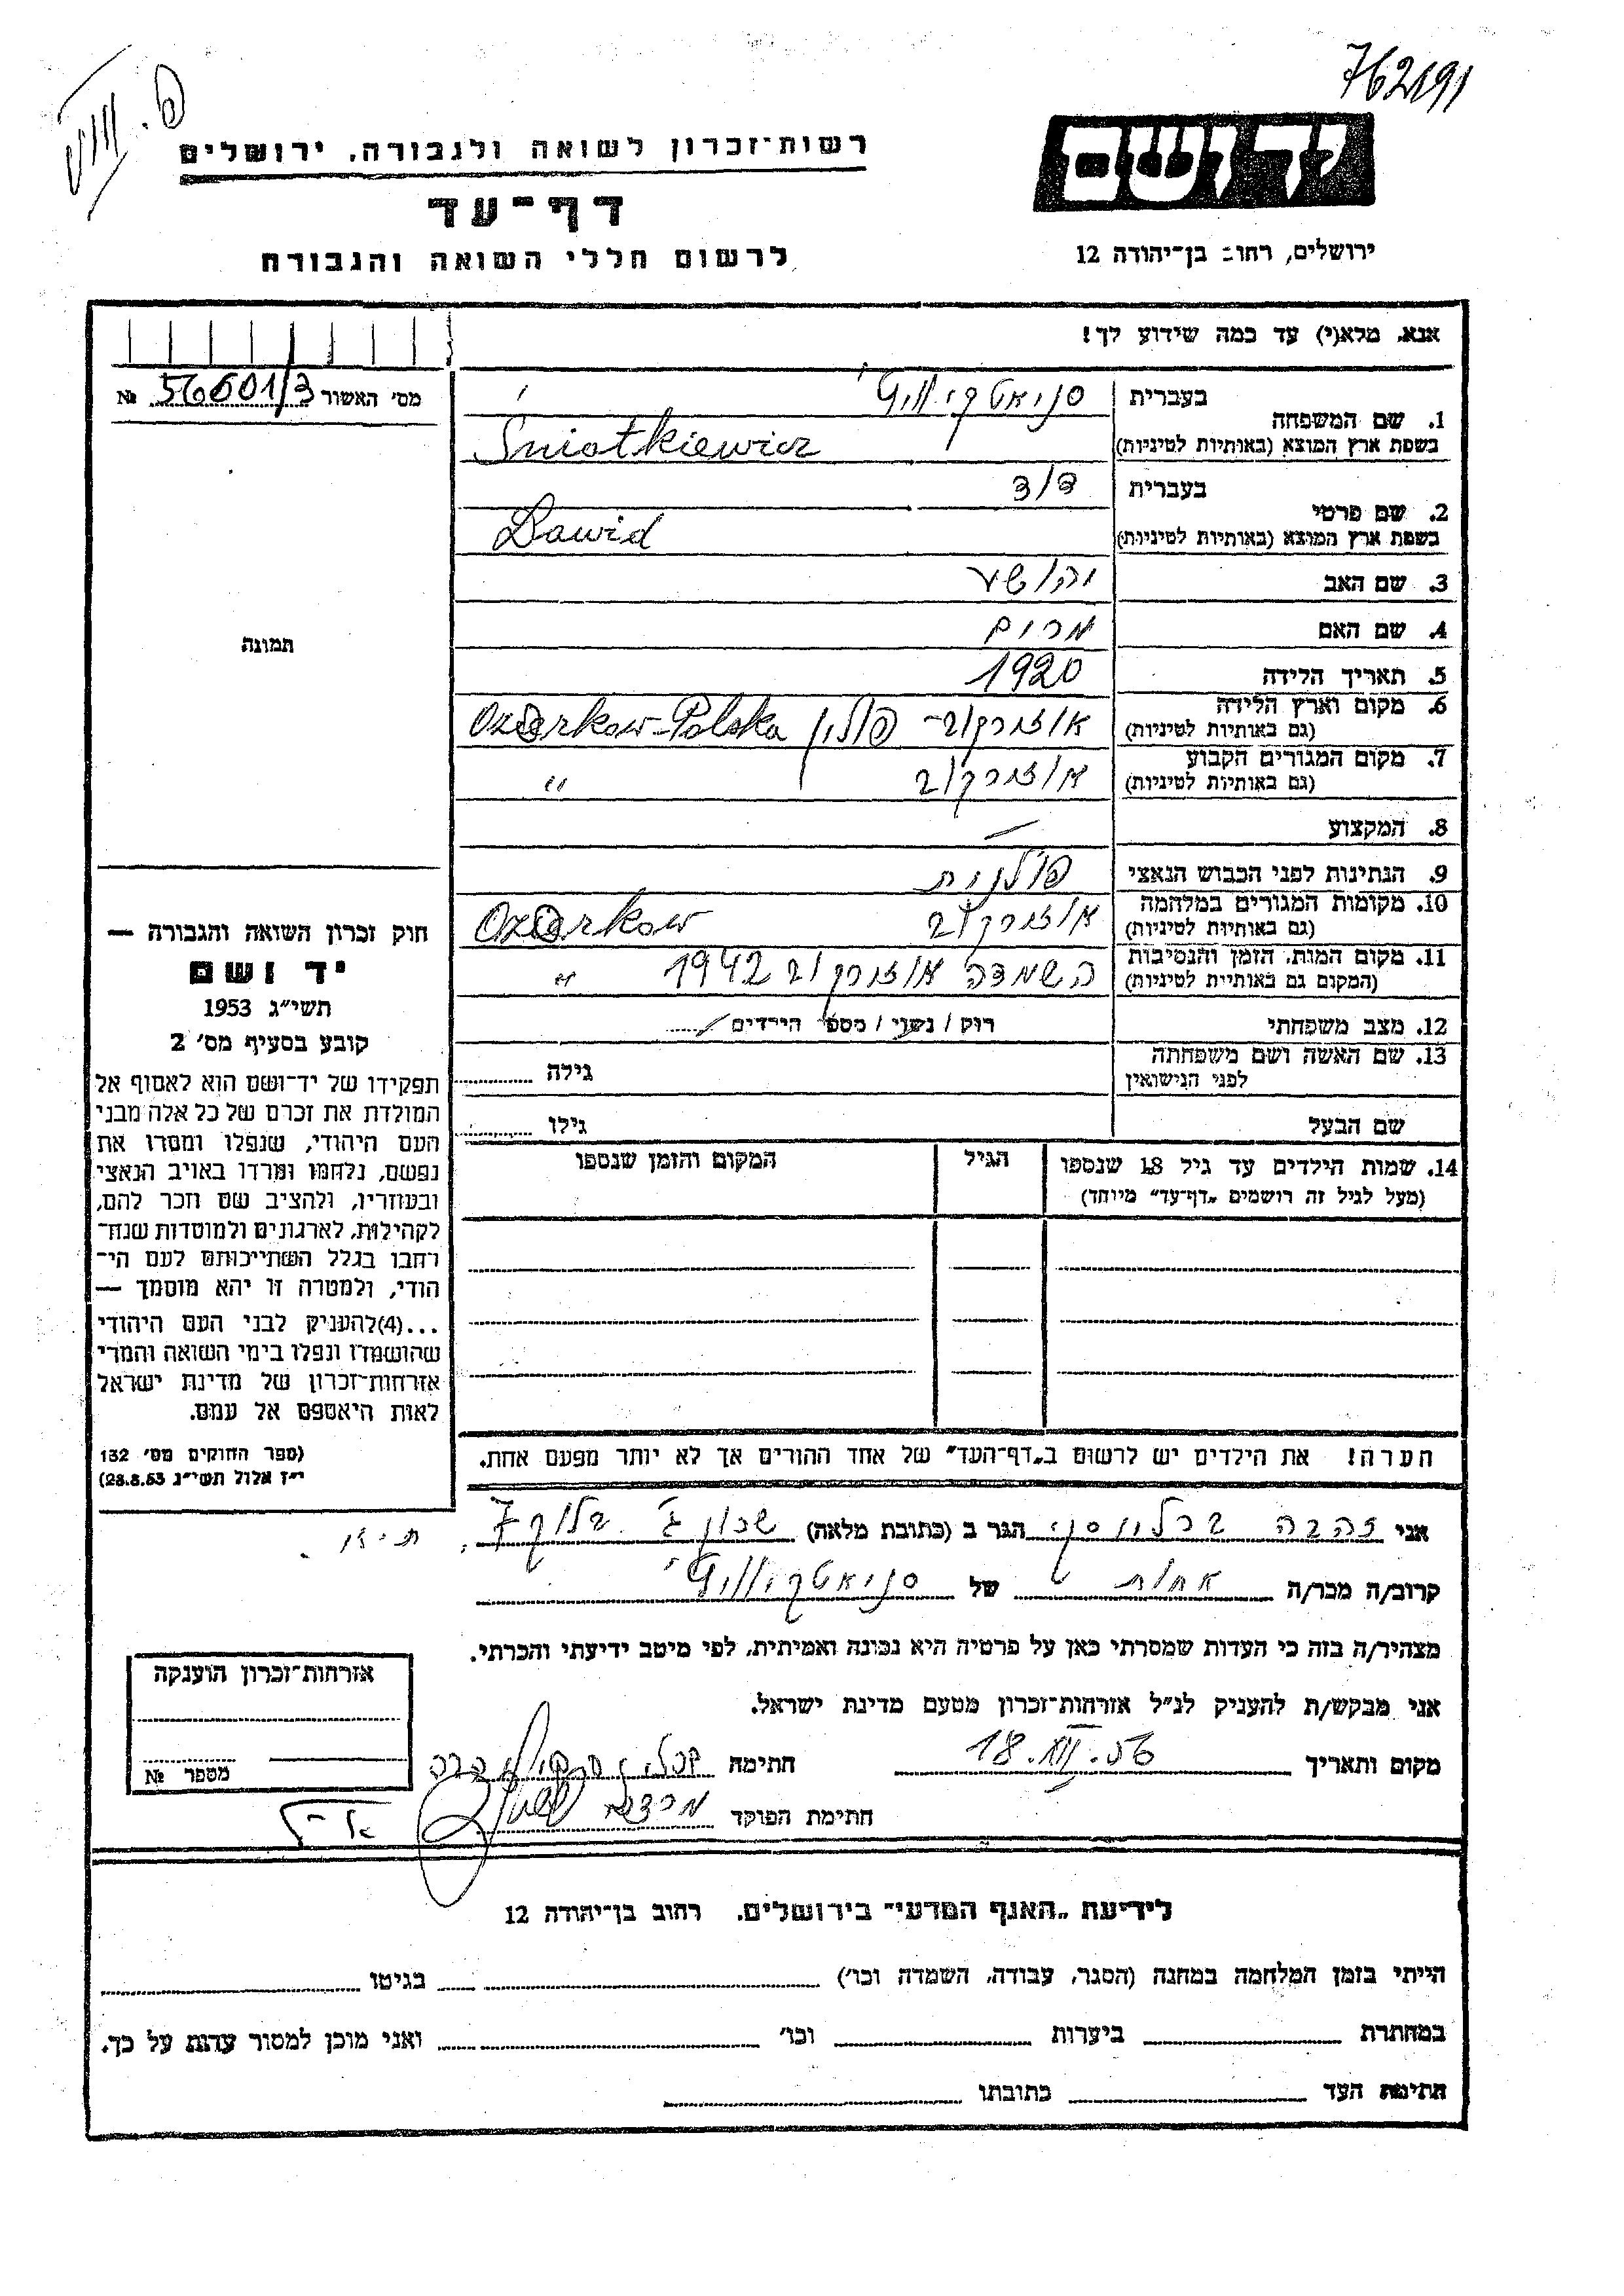 762191
רשות־זכרון לשואה ולגבורה, ירושלים
יד ושם
דף־עד
לרשום חללי השואה והגבורה
ירושלים, רחוב בן־יהודה 12
אנא, מלא(י) עד כמה שידוע לך!
מס׳ האשור 56601/3 №
1. שם המשפחה בעברית סניאטקיוויץ׳
בשפת ארץ המוצא (באותיות לטיניות) Sniatkiewicz
2. שם פרטי בעברית דוד
בשפת ארץ המוצא (באותיות לטיניות) Dawid
3. שם האב יהושע
4. שם האם מרים
5. תאריך הלידה 1920
6. מקום וארץ הלידה (גם באותיות לטיניות) אוזורקוב - פולין Ozorkow-Polska
7. מקום המגורים הקבוע (גם באותיות לטיניות) אוזורקוב "
8. המקצוע —
9. הנתינות לפני הכבוש הנאצי פולנית
10. מקומות המגורים במלחמה (גם באותיות לטיניות) אוזורקוב Ozorkow
11. מקום המות, הזמן והנסיבות (המקום גם באותיות לטיניות) השמדה אוזורקוב 1942 "
12. מצב משפחתי רוק / נשוי / מספר הילדים
13. שם האשה ושם משפחתה לפני הנישואין גילה
שם הבעל גילו
14. שמות הילדים עד גיל 18 שנספו הגיל המקום והזמן שנספו
(מעל לגיל זה רושמים „דף־עד" מיוחד)
הערה! את הילדים יש לרשום ב„דף־העד" של אחד ההורים אך לא יותר מפעם אחת.
תמונה
חוק זכרון השואה והגבורה —
יד ושם
תשי״ג 1953
קובע בסעיף מס׳ 2
תפקידו של יד־ושם הוא לאסוף אל
המולדת את זכרם של כל אלה מבני
העם היהודי, שנפלו ומסרו את
נפשם, נלחמו ומרדו באויב הנאצי
ובעוזריו, ולהציב שם וזכר להם,
לקהילות, לארגונים ולמוסדות שנח־
רבו בגלל השתייכותם לעם הי־
הודי, ולמטרה זו יהא מוסמך —
...(4)להעניק לבני העם היהודי
שהושמדו ונפלו בימי השואה והמרי
אזרחות־זכרון של מדינת ישראל
לאות היאספם אל עמם.
(ספר החוקים מס׳ 132
י״ז אלול תשי״ג 28.8.53)
אני זהבה הגר ב (כתובת מלאה) שכון ג׳ בלוק 7
קרוב/ה מכר/ה אחות של סניאטקיוויץ׳
מצהיר/ה בזה כי העדות שמסרתי כאן על פרטיה היא נכונה ואמיתית, לפי מיטב ידיעתי והכרתי.
אני מבקש/ת להעניק לנ״ל אזרחות־זכרון מטעם מדינת ישראל.
מקום ותאריך 18.XII.56 חתימה
חתימת הפוקד
אזרחות־זכרון הוענקה
מספר №
לידיעת „האגף המדעי" בירושלים, רחוב בן־יהודה 12
הייתי בזמן המלחמה במחנה (הסגר, עבודה, השמדה וכו׳) בגיטו
במחתרת ביערות וכו׳ ואני מוכן למסור עדות על כך.
חתימת העד כתובתו